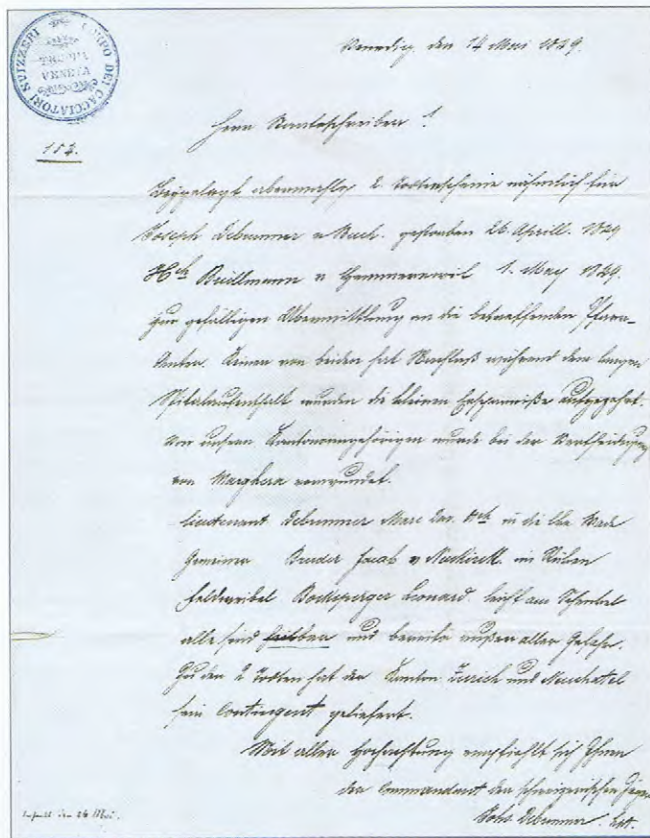 CORPO DEI CACCIATORI SUIZZERI
TRUPPA
VENETA
Venedig den 14 Mai 1849.
Herrn Staatsschreiber!
153.
Beygelegt abermahls 2 Todtenscheine nähmlich für
Joseph Debrunner v. gestorben 26. Aprill. 1849
Hch Brüllmann v. 1. May 1849.
zur gefälligen Übermittlung an die betreffenden Pfarr-
ämter. Keiner von beiden hat Nachlaß während dem langen
Spitalaufenthalt wurden die kleinen Ersparniße aufgezehrt.
Von unsern Kantonsangehörigen wurde bei der Vertheidigung
von Marghera verwundet.
Lieutenant Debrunner Marc in die
Gemeiner Bruder Jacob v. im Rüken
Feldweibel Leonard. leicht am Schenkel
alle sind und bereits außer aller Gefahr.
Zu den 2 Todten hat der Kanton Zürich und Neuchatel
sein Contingent geliefert.
Mit aller Hochachtung empfiehlt sich Ihnen
der Commandant der schweizerischen Jäger
Johs Debrunner
den 26 Mai.